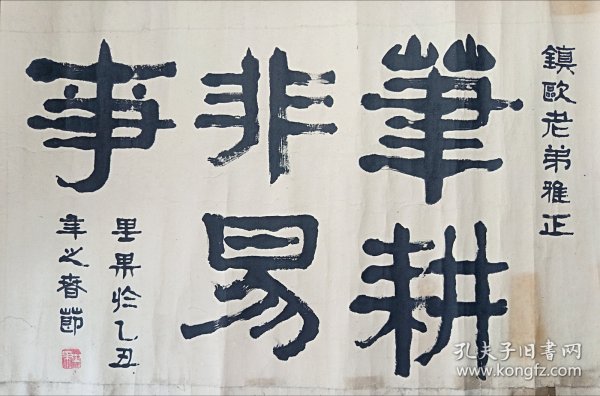 鎮歐老弟雅正
筆耕
非易
事
里果於乙丑
年之春節
孔夫子旧书网
www.kongfz.com